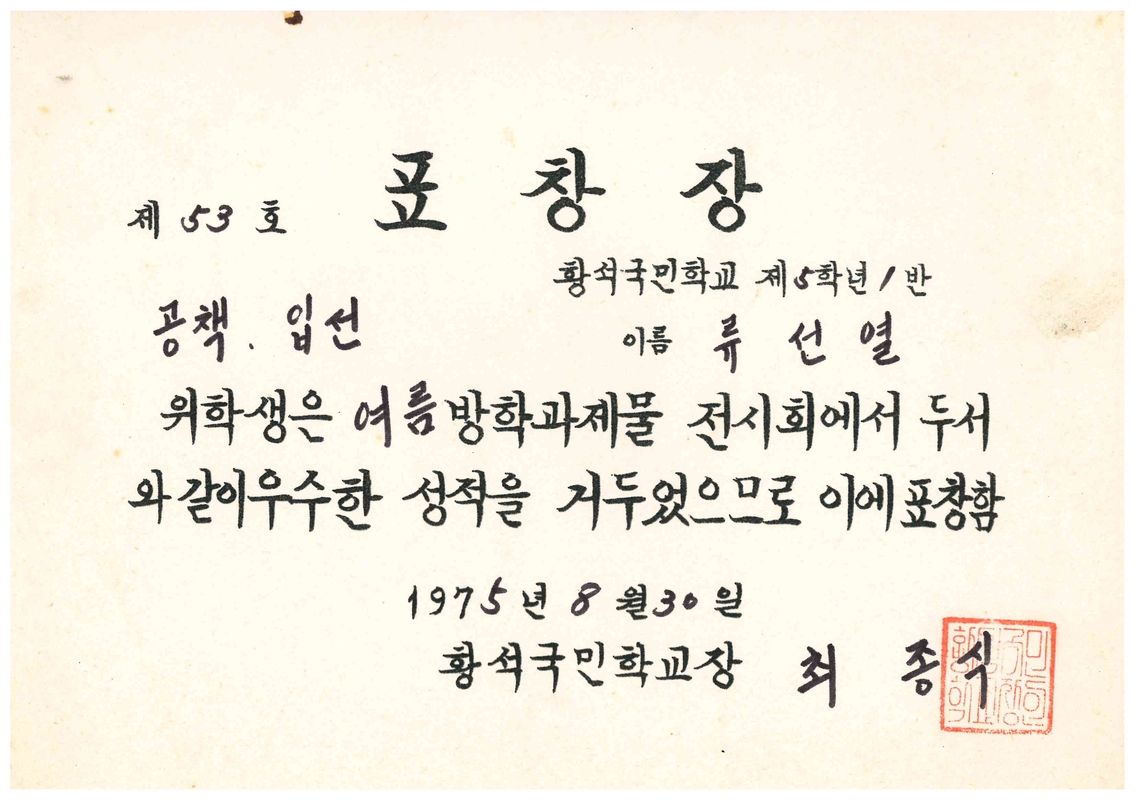 표 창 장
제 53 호
황석국민학교 제5학년 1 반
공책. 입선
이름 류 선 열
위학생은 여름방학과제물 전시회에서 두서
와 같이우수한 성적을 거두었으므로 이에표창함
1975년 8월30일
황석국민학교장 최 종 식